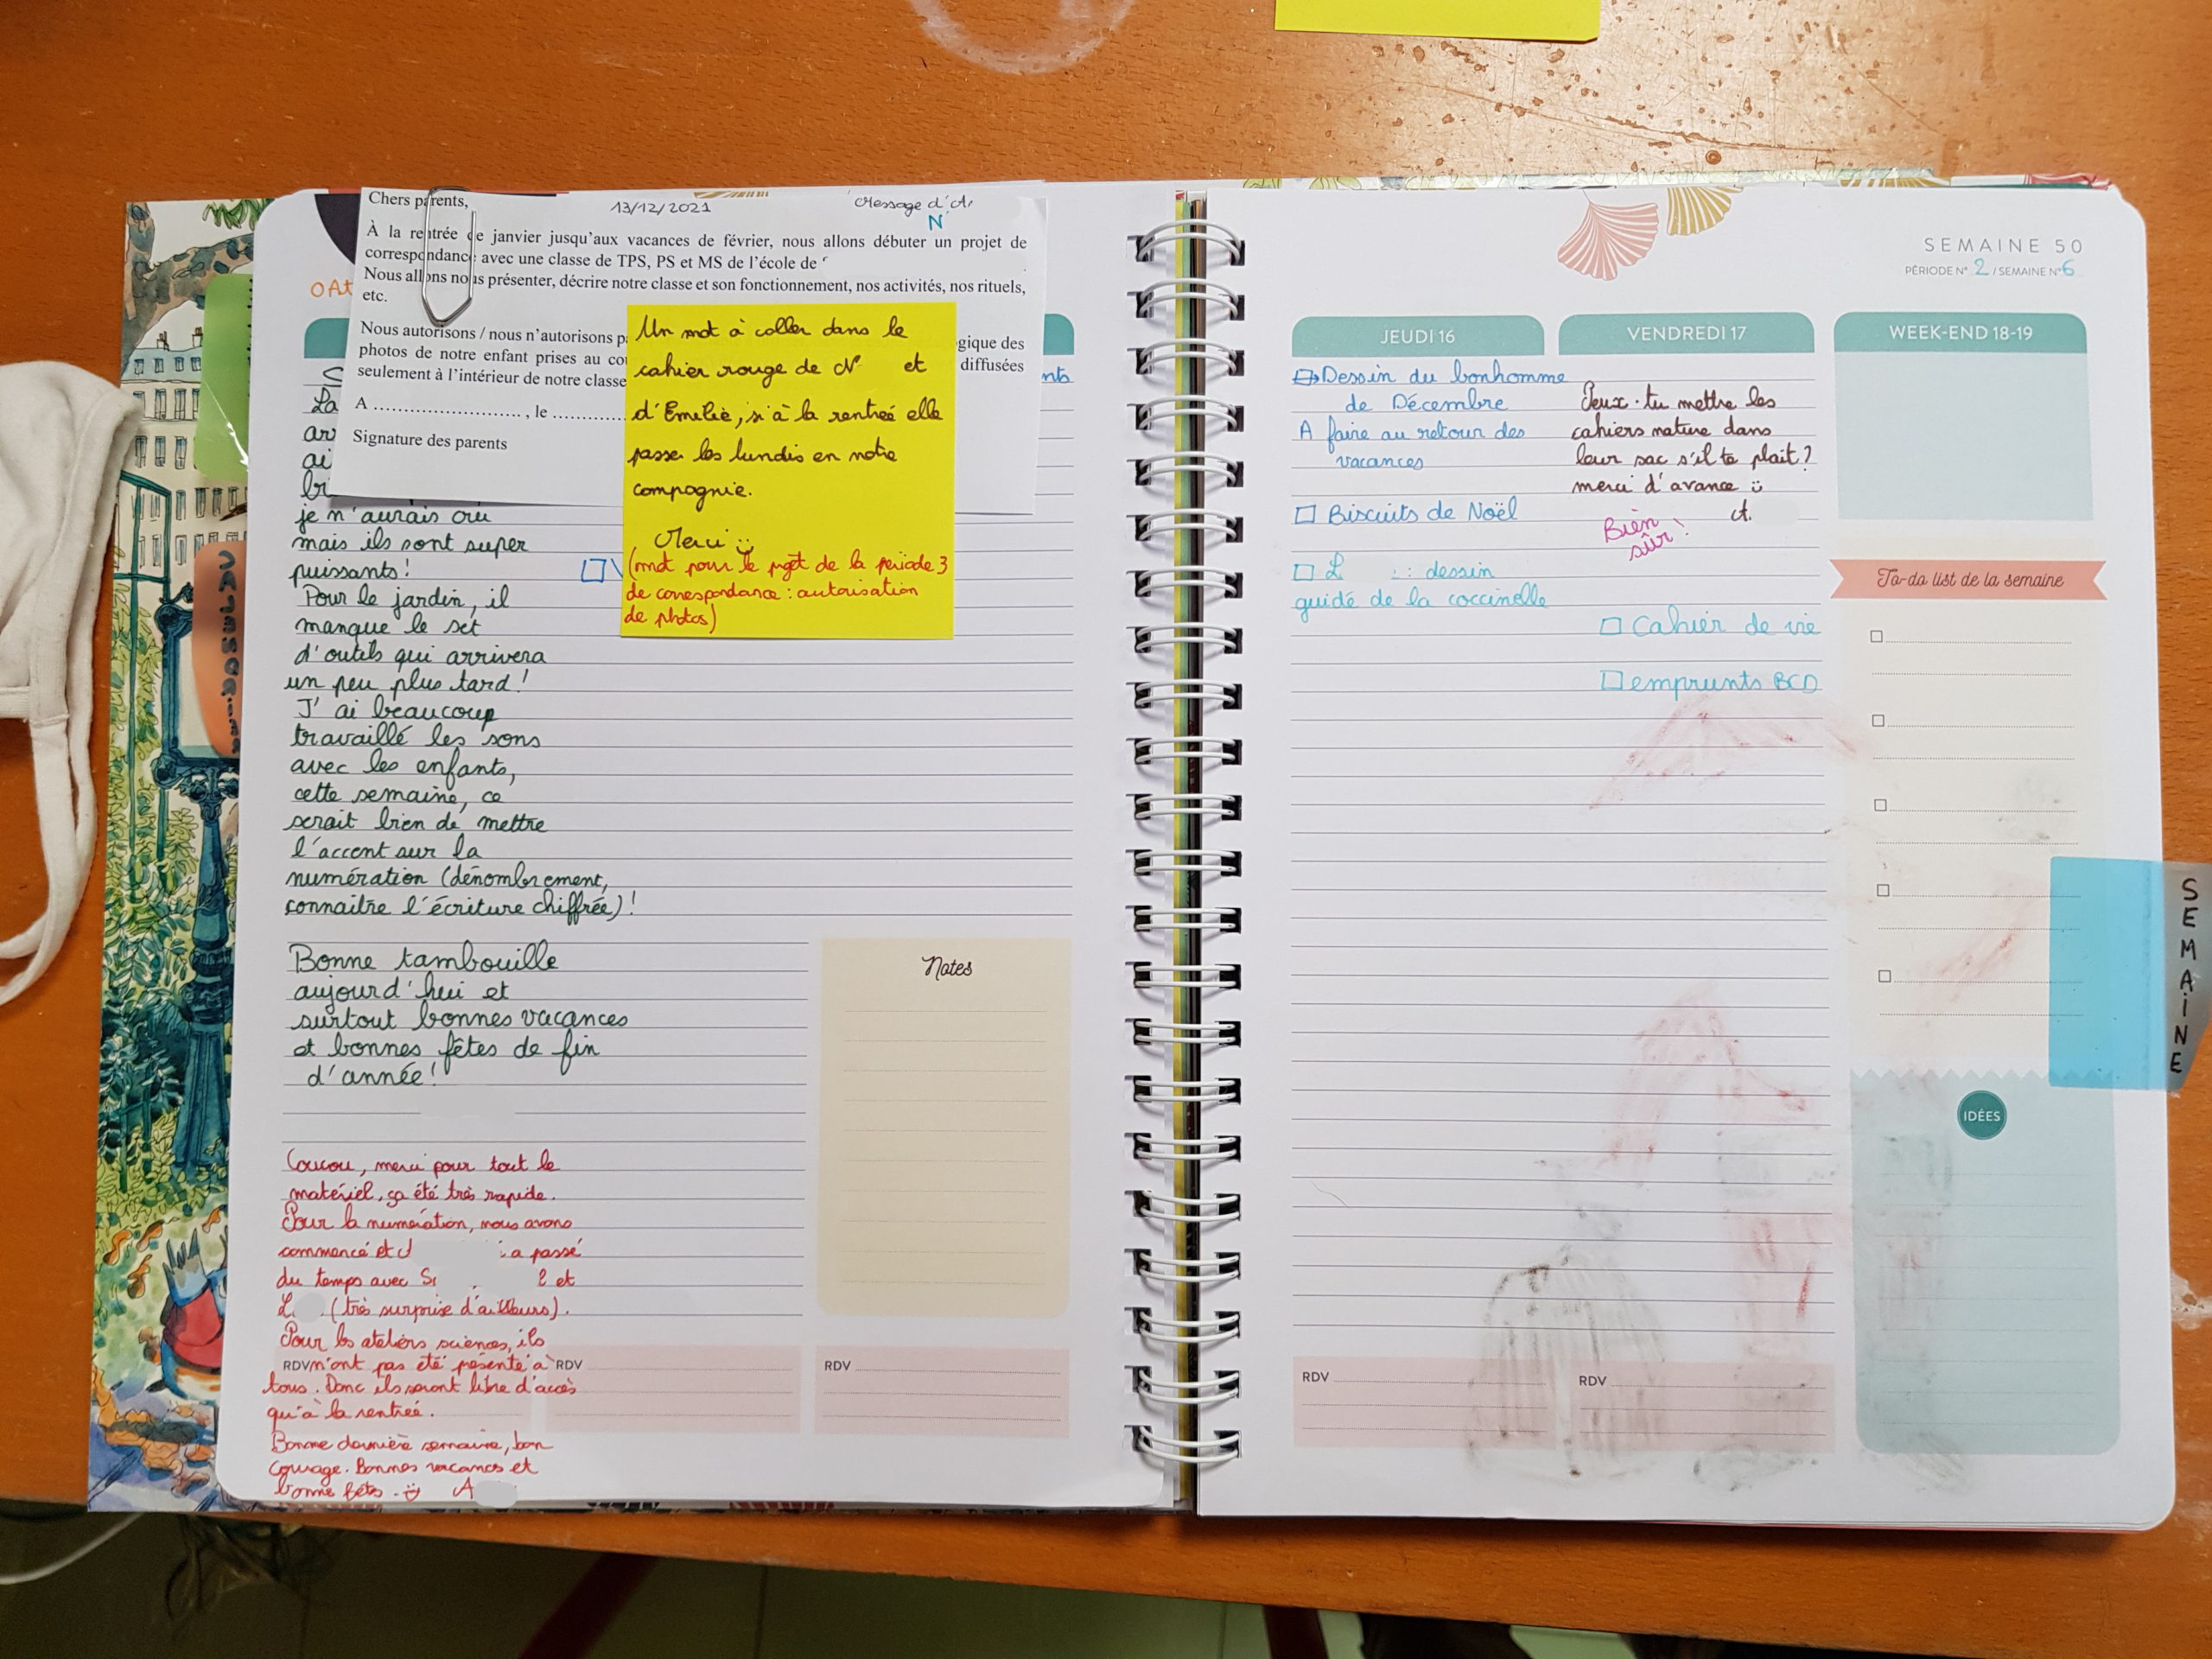 Chers parents,
13/12/2021
Message d'A
N
À la rentrée de janvier jusqu'aux vacances de février, nous allons débuter un projet de
correspondance avec une classe de TPS, PS et MS de l'école de
Nous allons nous présenter, décrire notre classe et son fonctionnement, nos activités, nos rituels,
etc.
Nous autorisons / nous n'autorisons
gique des
photos de notre enfant prises au
diffusées
seulement à l'intérieur de notre classe
A ........................... , le .............
Signature des parents
Un mot à coller dans le
cahier rouge de N et
d'Emilie, si à la rentrée elle
passe les lundis en notre
compagnie.
Merci
(mot pour le projet de la période 3
de correspondance : autorisation
de photos)
O At
nts
La
arr
ai
bi
je n'aurais cru
mais ils sont super
puissants !
Pour le jardin, il
manque le set
d'outils qui arrivera
un peu plus tard !
J'ai beaucoup
travaillé les sons
avec les enfants,
cette semaine, ce
serait bien de mettre
l'accent sur la
numération (dénombrement,
connaitre l'écriture chiffrée) !
Bonne tambouille
aujourd'hui et
surtout bonnes vacances
et bonnes fêtes de fin
d'année !
Coucou, merci pour tout le
matériel, ça été très rapide.
Pour la numération, nous avons
commencé et a passé
du temps avec S et
L (très surprise d'ailleurs).
Pour les ateliers sciences, ils
n'ont pas été présenté à
tous. Donc ils seront libre d'accès
qu'à la rentrée.
Bonne dernière semaine, bon
courage. Bonnes vacances et
bonne fêtes. A
Notes
RDV
RDV
RDV
SEMAINE 50
PÉRIODE N° 2 / SEMAINE N° 6
JEUDI 16
Dessin du bonhomme
de Décembre
A faire au retour des
vacances
Biscuits de Noël
L : dessin
guidé de la coccinelle
VENDREDI 17
Peux-tu mettre les
cahiers nature dans
leur sac s'il te plait ?
merci d'avance
A.
Bien
sûr !
Cahier de vie
emprunts BCD
RDV
RDV
WEEK-END 18-19
To-do list de la semaine
IDÉES
SEMAINE